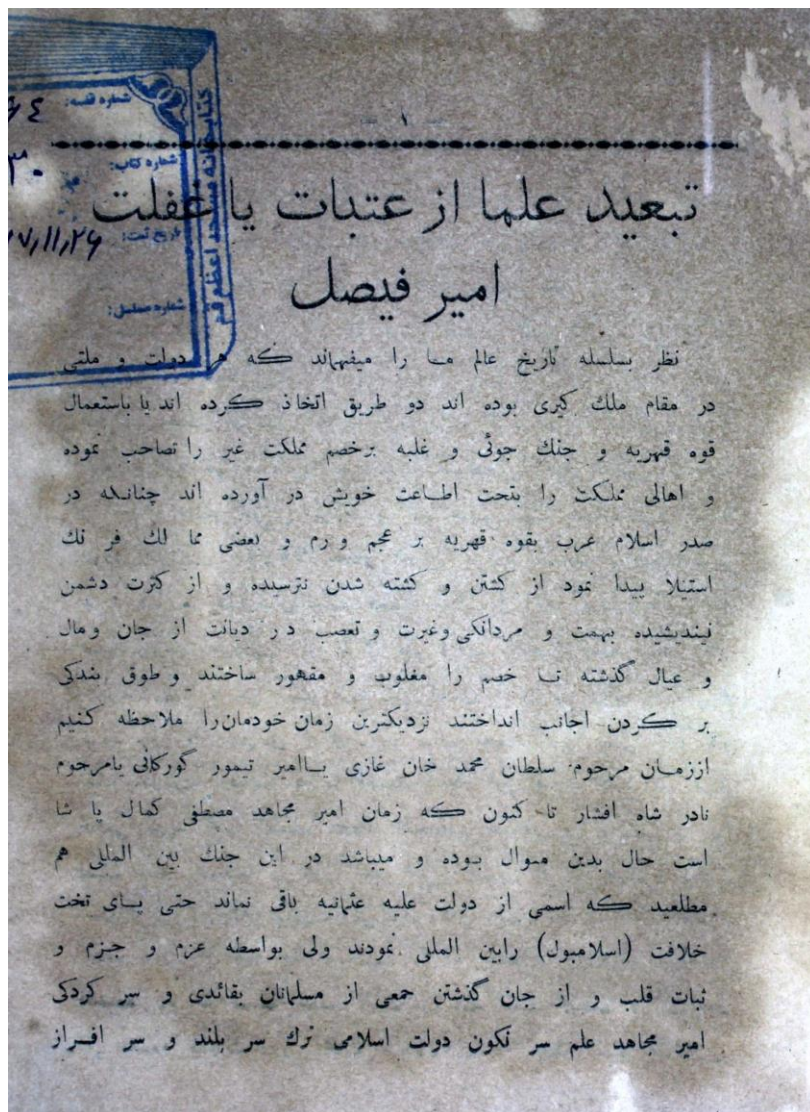 ۱
تبعید علما از عتبات یا غفلت
امیر فیصل
نظر بسلسله تاریخ عالم ما را میفهماند که هر دولت و ملتی
در مقام ملك کیری بوده اند دو طریق اتخاذ کرده اند یا باستعمال
قوه قهریه و جنك جوئی و غلبه برخصم مملکت غیر را تصاحب نموده
و اهالی مملکت را بتحت اطاعت خویش در آورده اند چنانکه در
صدر اسلام عرب بقوه قهریه بر عجم و رم و بعضی مما لك فر نك
استیلا پیدا نمود از کشتن و کشته شدن نترسیده و از کثرت دشمن
نیندیشیده بهمت و مردانکی وغیرت و تعصب در دیانت از جان ومال
و عیال گذشته تا خصم را مغلوب و مقهور ساختند و طوق بندکی
بر کردن اجانب انداختند نزدیکترین زمان خودمان را ملاحظه کنیم
اززمان مرحوم سلطان محمد خان غازی یاامیر تیمور گورکانی یامرحوم
نادر شاه افشار تا کنون که زمان امیر مجاهد مصطفی کمال پا شا
است حال بدین منوال بوده و میباشد در این جنك بین المللی هم
مطلعید که اسمی از دولت علیه عثمانیه باقی نماند حتی پای تخت
خلافت (اسلامبول) رابین المللی نمودند ولی بواسطه عزم و جزم و
ثبات قلب و از جان گذشتن جمعی از مسلمانان بقائدی و سر کردکی
امیر مجاهد علم سر نکون دولت اسلامی ترك سر بلند و سر افراز
شماره قفسه:
شماره کتاب:
تاریخ ثبت:
شماره مسلسل:
کتابخانه مسجد اعظم قم